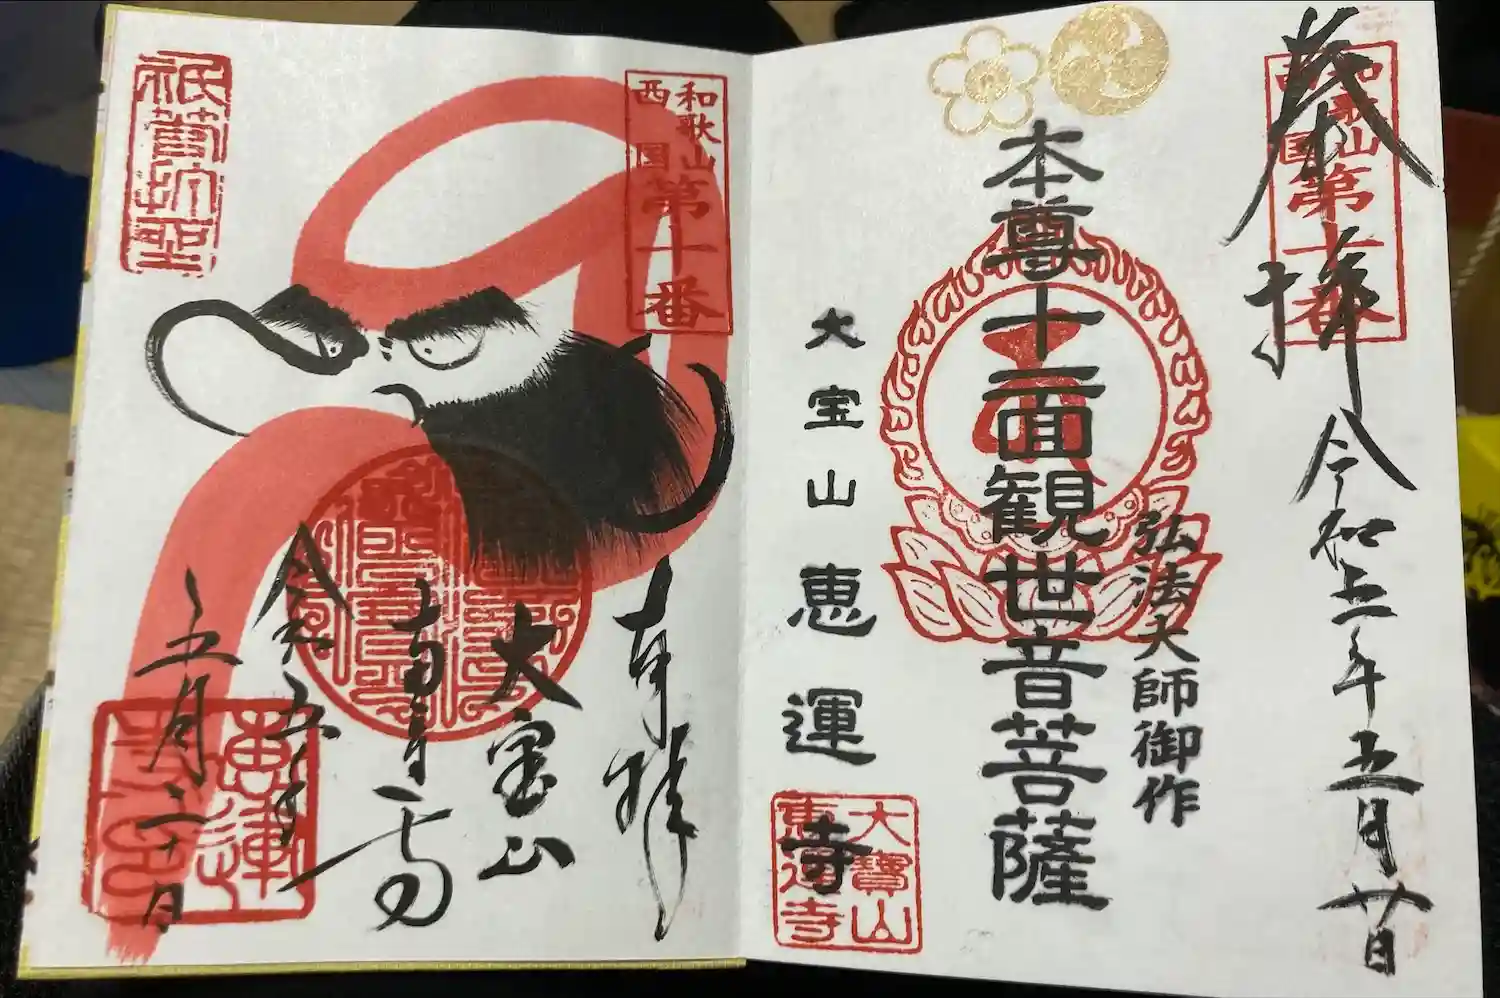 奉拝
令和五年五月廿日
和歌山
西国
第十番
弘法大師御作
本尊十一面観世音菩薩
大宝山恵運寺
大寶山
恵運寺
和歌山
西国
第十番
奉拝
大宝山
令和五年
五月二十日